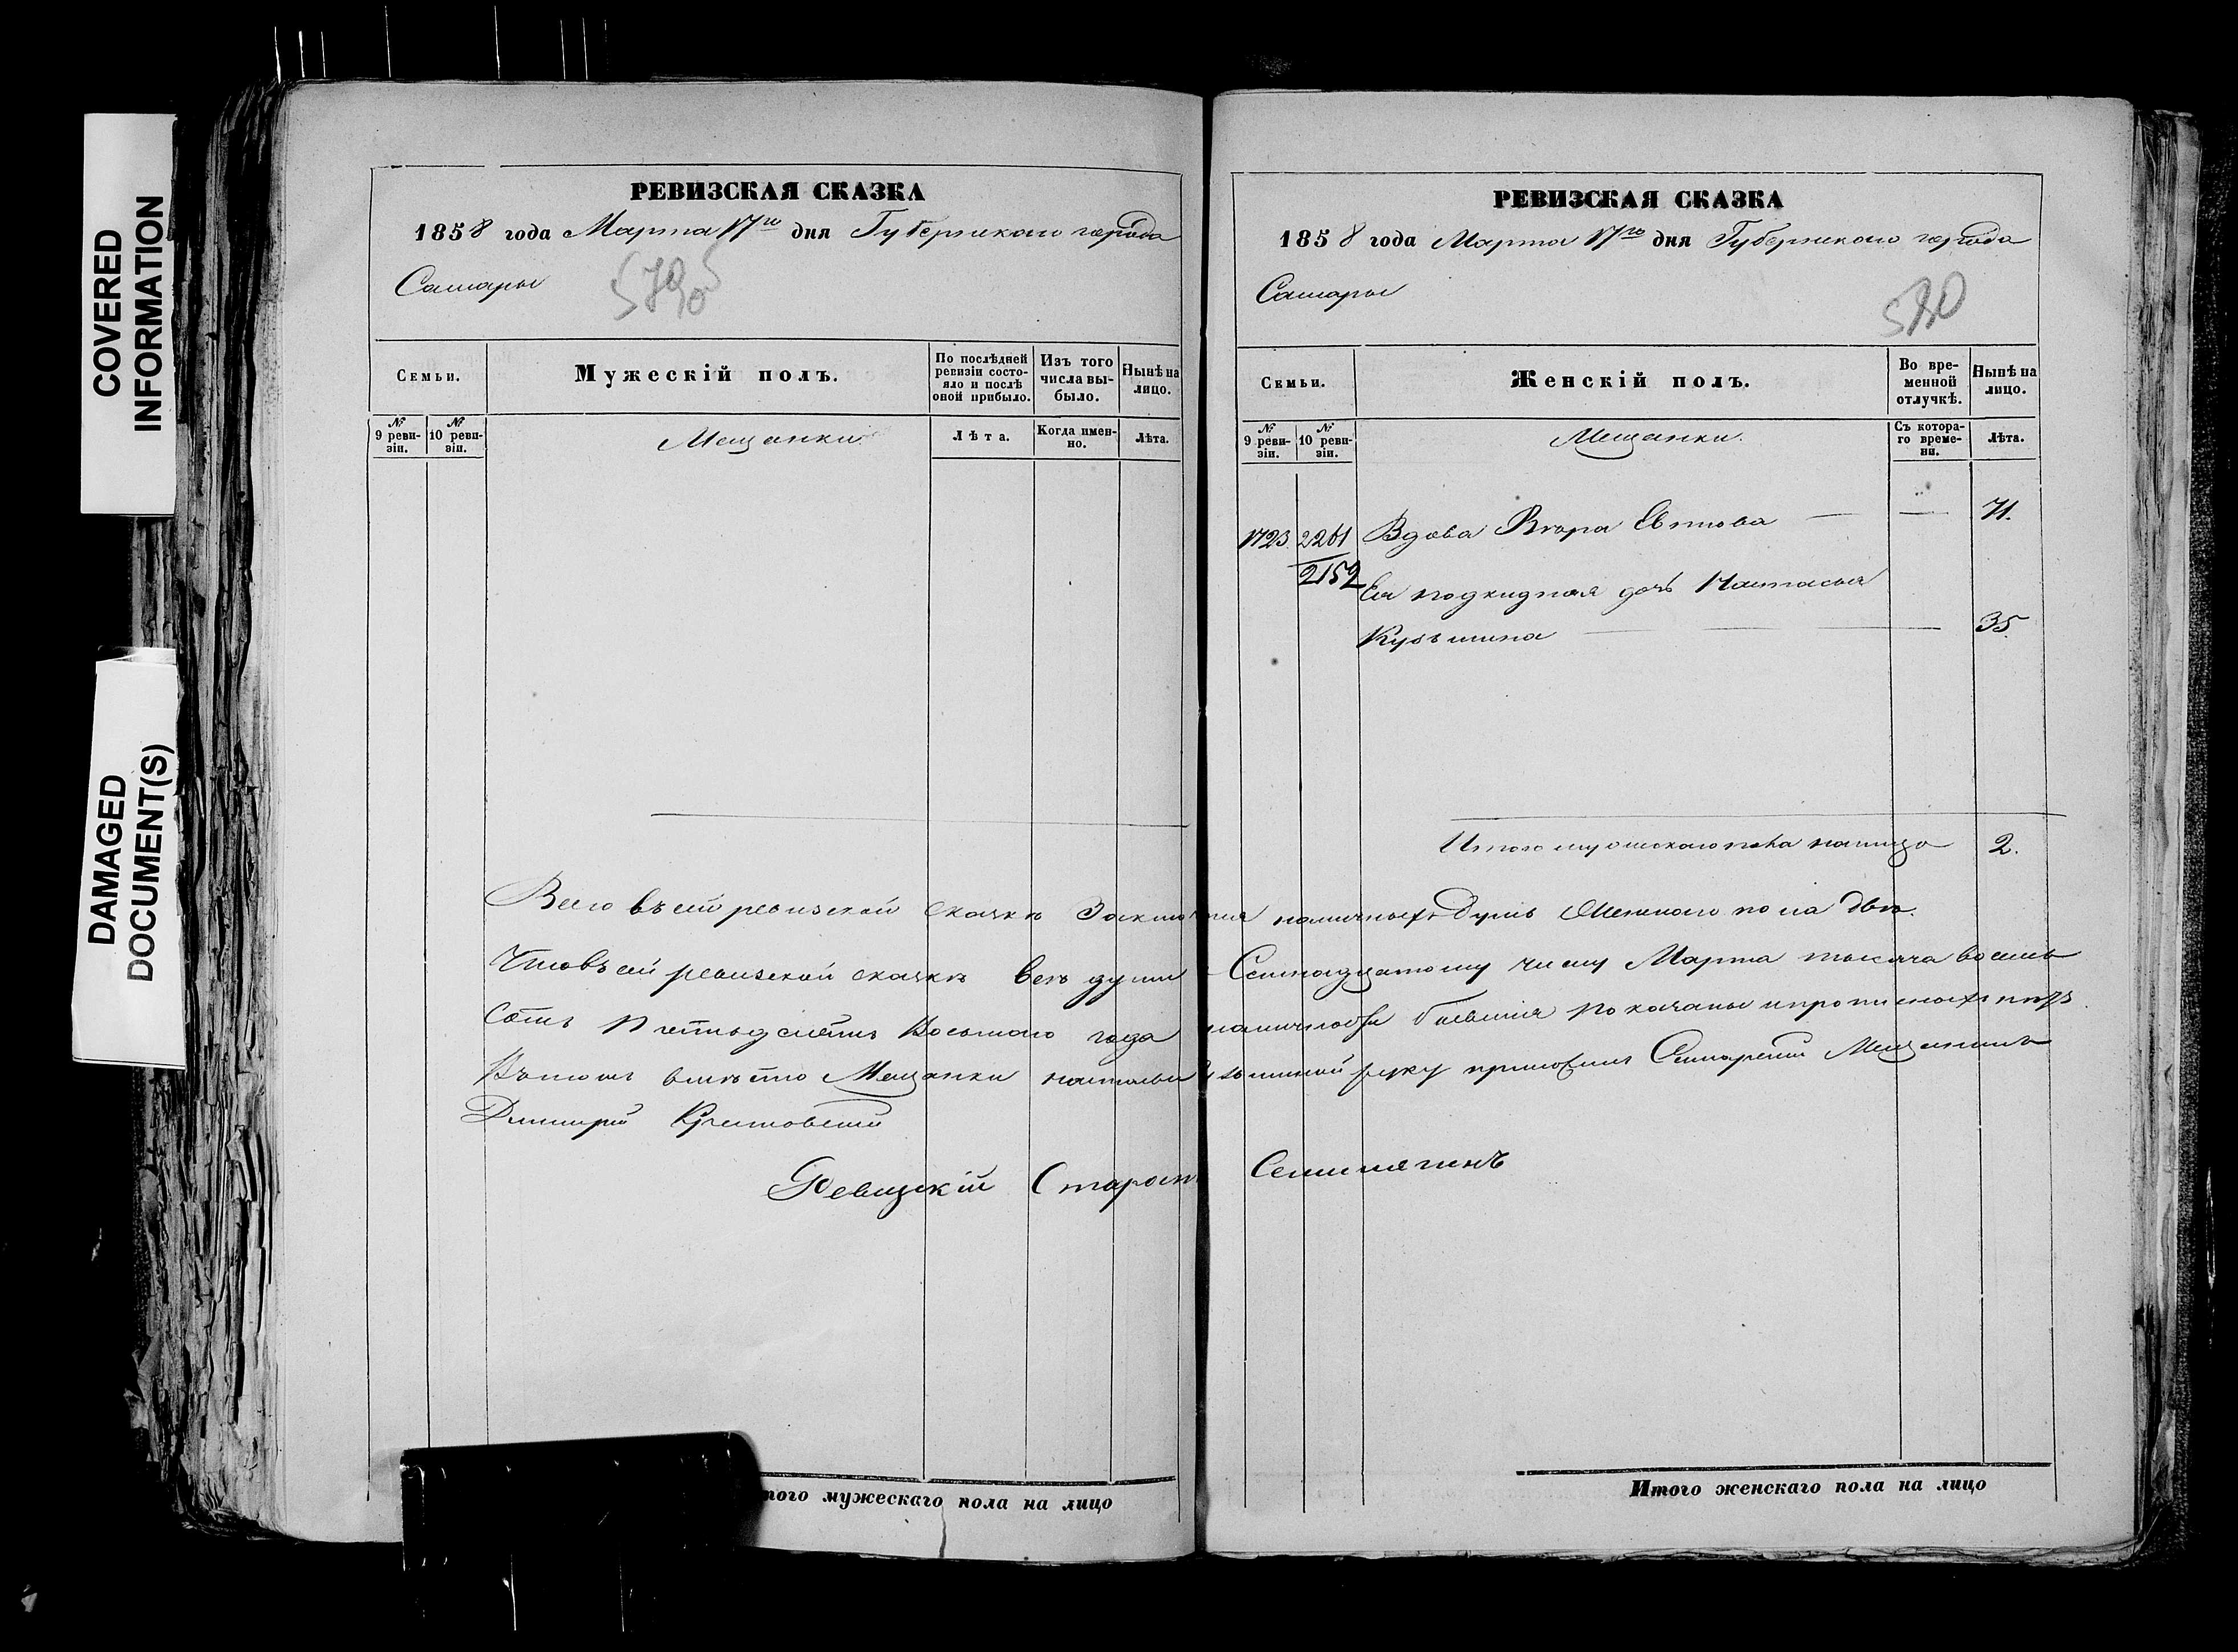 COVERED
INFORMATION
DAMAGED
DOCUMENT(S)
РЕВИЗСКАЯ СКАЗКА
1858 года Марта 17го дня Губернскаго города
Самары
Семьи.
Мужескій полъ.
По послѣдней ревизіи состо-
яло и послѣ
оной прибыло.
Изъ того
числа вы-
было.
Нынѣ на
лицо.
№ 9 реви-
зіи.
№ 10 реви-
зіи.
Мещанки
Лѣта.
Когда имен-
но.
Лѣта.
РЕВИЗСКАЯ СКАЗКА
1858 года Марта 17го дня Губернскаго города
Самары
580
Семьи.
Женскій полъ.
Во вре-
менной
отлучкѣ.
Нынѣ на
лицо.
№ 9 реви-
зіи.
№ 10 реви-
зіи.
Мещанки.
Съ котора-
го време-
ни.
Лѣта.
1723. 2261 Вдова 71.
2152
Ея подкидная дочь Настасья
Кузьмина 35.
Итого пола налицо 2.
Всего въ сей ревизской сказкѣ наличныхъ душъ Женскаго пола двѣ.
Что въ сей ревизской сказкѣ все души Семнадцатому числу Марта тысяча восемь
Сотъ Пятьдесятъ Восьмаго года бывшія показаны и прописныхъ нѣтъ.
Въ томъ вмѣсто Мещанки руку приложилъ Самарскій Мещанинъ
Дмитрій
Ревизскій Староста
того мужескаго пола на лицо
Итого женскаго пола на лицо